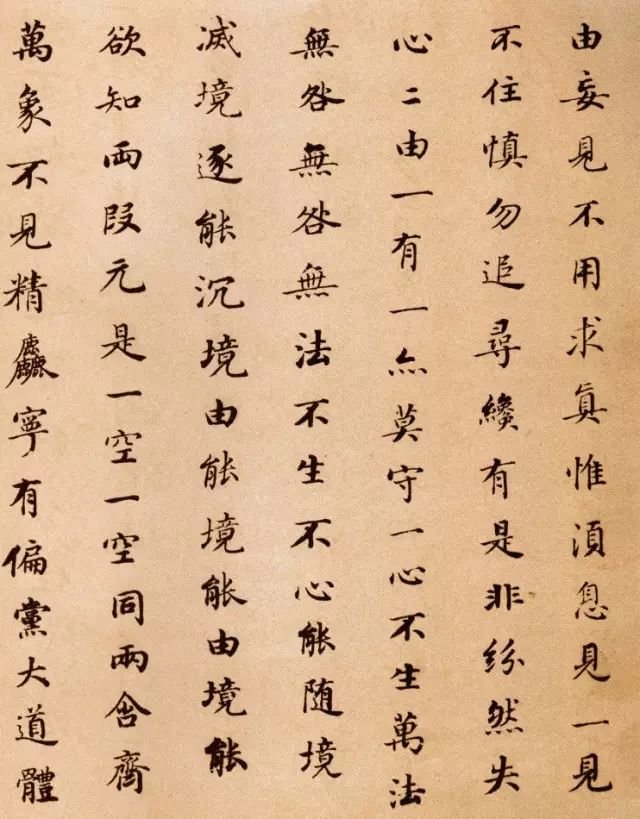 由妄見不用求真惟湏息見一見
不住慎勿追尋纔有是非紛然失
心二由一有一亦莫守一心不生萬法
無咎無咎無法不生不心能随境
滅境逐能沉境由能境能由境能
欲知兩段元是一空一空同兩含齊
萬象不見精麤寧有偏黨大道體